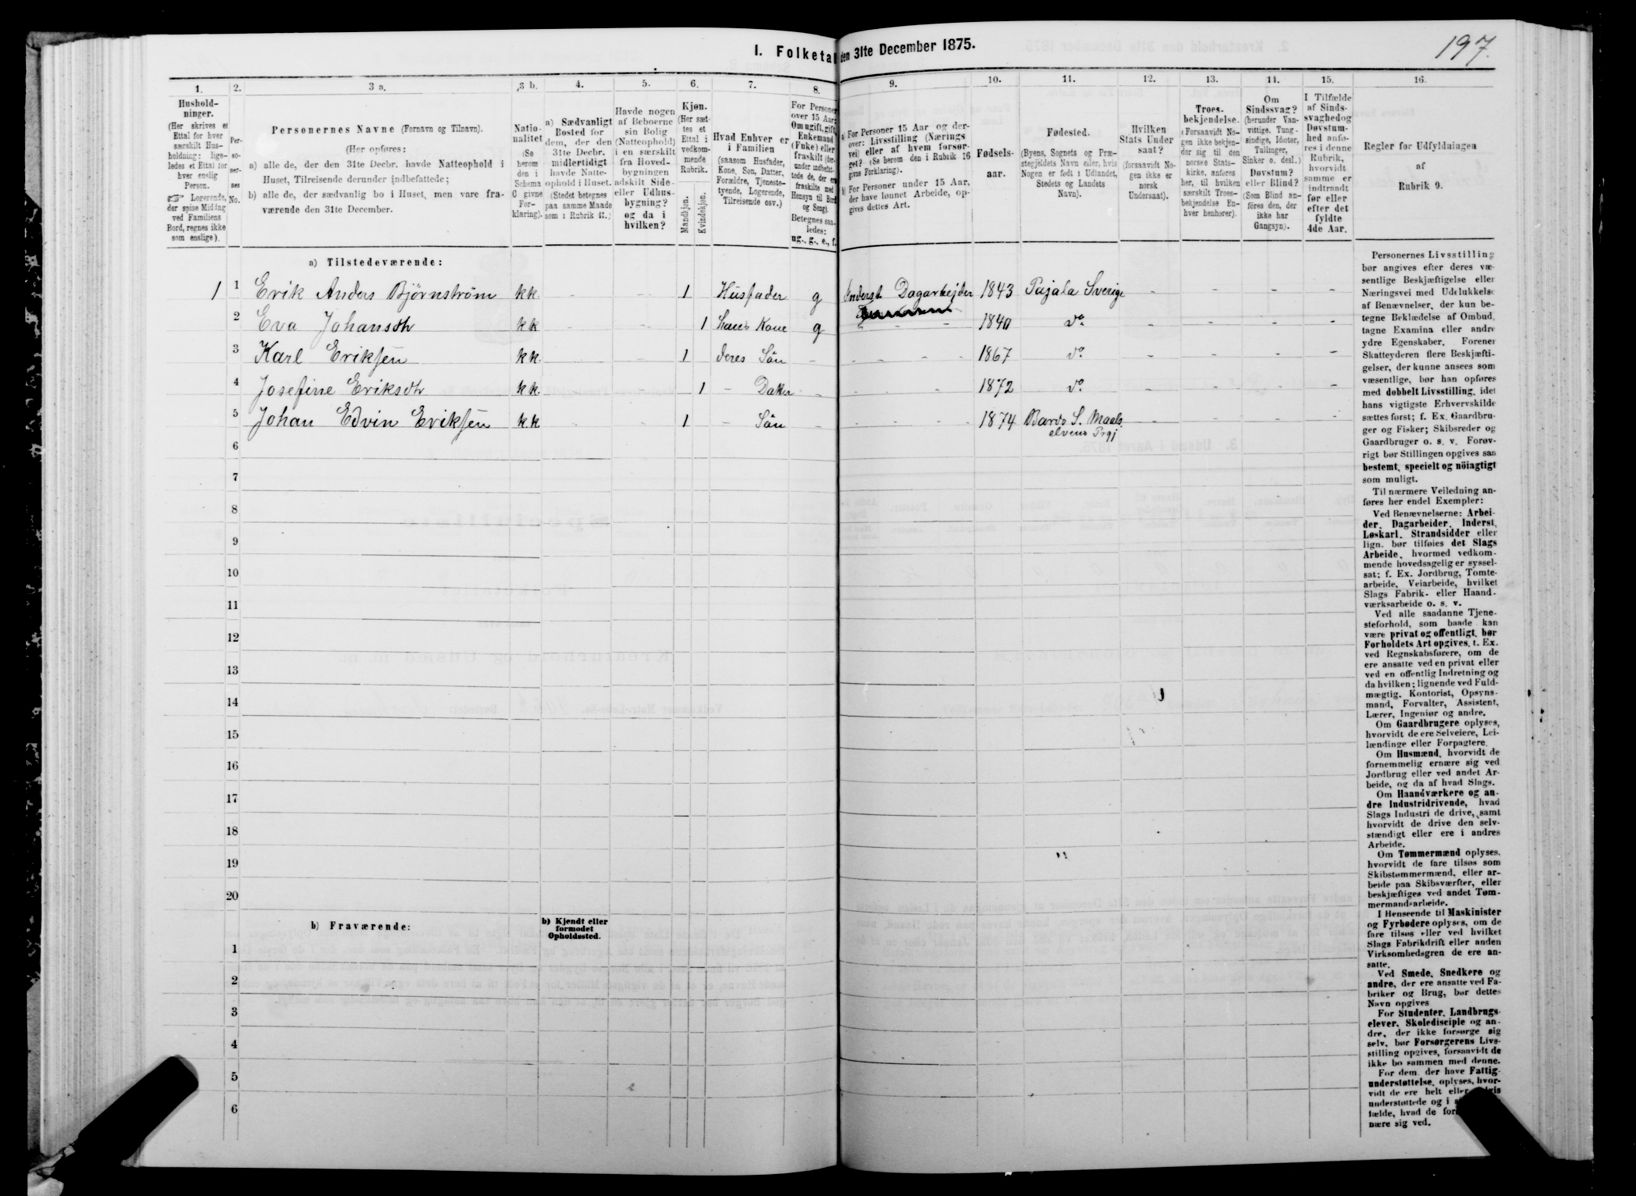 I. Folketal den 31te December 1875.
197.
1. 2. 3 a. 3 b. 4. 5. 6. 7. 8. 9. 10. 11. 12. 13. 14. 15. 16.
Hushold-
ninger.
(Her skrives et
Ettal for hver
særskilt Hus-
holdning; lige-
ledes et Ettal for
hver enslig
Person.
☞ Logerende,
der spise Middag
ved Familiens
Bord, regnes ikke
som enslige).
Per-
so-
ner-
nes
No.
Personernes Navne (Fornavn og Tilnavn).
(Her opføres:
a) alle de, der den 31te Decbr. havde Natteophold i
Huset, Tilreisende derunder indbefattede;
b) alle de, der sædvanlig bo i Huset, men vare fra-
værende den 31te December.
Natio-
nalitet
(Se
herom
den i
Schema
O givne
For-
klaring).
a) Sædvanligt
Bosted for
dem, der den
31te Decbr.
midlertidigt
havde Natte-
ophold i Huset.
(Stedet betegnes
paa samme Maade
som i Rubrik 11.)
Havde nogen
af Beboerne
sin Bolig
(Natteophold)
i en særskilt
fra Hoved-
bygningen
adskilt Side-
eller Udhus-
bygning?
og da i
hvilken?
Kjøn.
(Her sæt-
tes et
Ettal i
vedkom-
mende
Rubrik.
Mandkjøn.
Kvindekjøn.
Hvad Enhver er
i Familien
(saasom Husfader,
Kone, Søn, Datter,
Forældre, Tjeneste-
tyende, Logerende,
Tilreisende osv.)
For Personer
over 15 Aar:
Om ugift, gift,
Enkemand
(Enke) eller
fraskilt
Betegnes saa-
ledes:
ug., g., e., f.
a) For Personer 15 Aar og der-
over: Livsstilling (Nærings-
vei) eller af hvem forsør-
get? (Se herom den i Rubrik 16
givne Forklaring).
b) For Personer under 15 Aar,
der have lønnet Arbeide, op-
gives dettes Art.
Fødsels-
aar.
Fødested.
(Byens, Sognets og Præ-
stegjeldets Navn eller, hvis
Nogen er født i Udlandet,
Stedets og Landets
Navn).
Hvilken
Stats Under-
saat?
(forsaavidt No-
gen ikke er
norsk
Undersaat).
Troes-
bekjendelse.
(Forsaavidt No-
gen ikke bekjen-
der sig til den
norske Stats-
kirke, anføres
her, til hvilken
særskilt Troes-
bekjendelse En-
hver henhører).
Om
Sindssvag?
(herunder Van-
vittige, Tung-
sindige, Idioter,
Tullinger,
Sinker o. desl.)
Døvstum?
eller Blind?
(Som Blind an-
føres den, der
ikke har
Gangsyn).
I Tilfælde
af Sinds-
svaghed og
Døvstum-
hed anfø-
res i denne
Rubrik,
hvorvidt
samme er
indtraadt
før eller
efter det
fyldte
4de Aar.
Regler for Udfyldningen
af
Rubrik 9.
a) Tilstedeværende:
1 1 Erik Anders Bjørnstrøm kk - - 1 Husfader g Inderst Dagarbejder 1843 Pajala Sverige - - - -
2 Eva Johansdtr kk - - 1 hans Kone g - - - 1840 do - - - -
3 Karl Eriksen kk 1 deres Søn - - - - 1867 do - - - -
4 Josefine Eriksdtr kk 1 - Datter - - - - 1872 do - - - -
5 Johan Edvin Eriksen kk 1 - Søn - - - - 1874 Bardo S. Maals
elvens Prgj - - - -
6
7
8
9
10
11
12
13
14
15
16
17
18
19
20
b) Fraværende:
b) Kjendt eller
formodet
Opholdssted.
1
2
3
4
5
6
Personernes Livsstilling
bør angives efter deres væ-
sentlige Beskjæftigelse eller
Næringsvei med Udelukkelse
af Benævnelser, der kun be-
tegne Beklædelse af Ombud,
tagne Examina eller andre
ydre Egenskaber. Forener
Skatteyderen flere Beskjæfti-
gelser, der kunne ansees som
væsentlige, bør han opføres
med dobbelt Livsstilling, idet
hans vigtigste Erhvervskilde
sættes først; f. Ex. Gaardbru-
ger og Fisker; Skibsreder og
Gaardbruger o. s. v. Forøv-
rigt bør Stillingen opgives saa
bestemt, specielt og nöiagtigt
som muligt.
Til nærmere Veiledning an-
føres her endel Exempler:
Ved Benævnelserne: Arbei-
der, Dagarbeider, Inderst,
Løskarl, Strandsidder eller
lign. bør tilføies det Slags
Arbeide, hvormed vedkom-
mende hovedsagelig er syssel-
sat; f. Ex. Jordbrug, Tomte-
arbeide, Veiarbeide, hvilket
Slags Fabrik- eller Haand-
værksarbeide o. s. v.
Ved alle saadanne Tjene-
steforhold, som baade kan
være privat og offentligt, bør
Forholdets Art opgives, t. Ex.
ved Regnskabsførere, om de
ere ansatte ved en privat eller
ved en offentlig Indretning og
da hvilken; lignende ved Fuld-
mægtig, Kontorist, Opsyns-
mand, Forvalter, Assistent,
Lærer, Ingeniør og andre.
Om Gaardbrugere oplyses,
hvorvidt de ere Selveiere, Lei-
lændinge eller Forpagtere.
Om Husmænd, hvorvidt de
fornemmelig ernære sig ved
Jordbrug eller ved andet Ar-
beide, og da af hvad Slags.
Om Haandværkere og an-
dre Industridrivende, hvad
Slags Industri de drive, samt
hvorvidt de drive den selv-
stændigt eller ere i andres
Arbeide.
Om Tømmermænd oplyses,
hvorvidt de fare tilsøs som
Skibstømmermænd, eller ar-
beide paa Skibsværfter, eller
beskjæftiges ved andet Tøm-
mermandsarbeide.
I Henseende til Maskinister
og Fyrbødere oplyses, om de
fare tilsøs eller ved hvilket
Slags Fabrikdrift eller anden
Virksomhedsgren de ere an-
satte.
Ved Smede, Snedkere og
andre, der ere ansatte ved Fa-
briker og Brug, bør dettes
Navn opgives
For Studenter, Landbrugs-
elever, Skoledisciple og an-
dre, der ikke forsørge sig
selv, bør Forsørgerens Livs-
stilling opgives, forsaavidt de
ikke bo sammen med denne.
For dem, der have Fattig-
understøttelse, oplyses, hvor-
vidt de ere helt eller
understøttede og i
fælde, hvad de
nære sig ved.